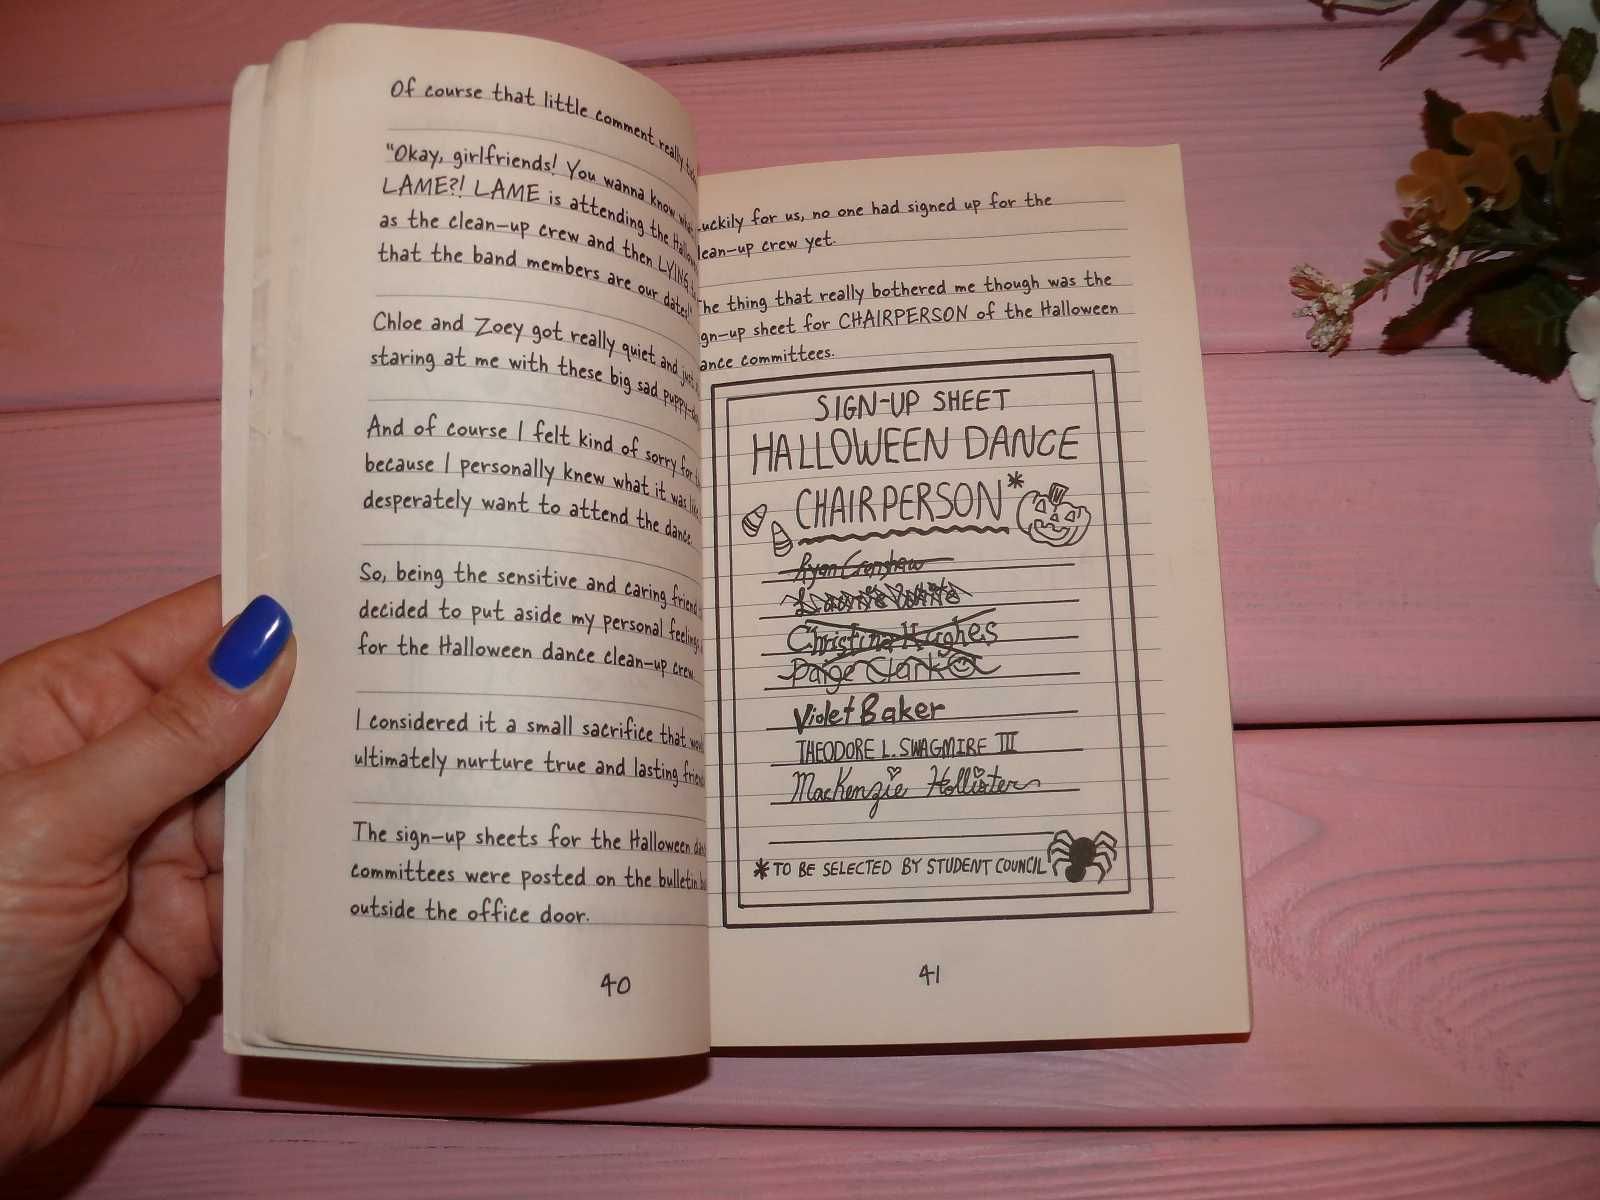 Of course that little comment really
"Okay, girlfriends! You wanna know what
LAME?! LAME is attending the
as the clean-up crew and then LYING
that the band members are our dates!"
Chloe and Zoey got really quiet and just
staring at me with these big sad
And of course I felt kind of sorry for
because I personally knew what it was
desperately want to attend the dance.
So, being the sensitive and caring friend
decided to put aside my personal feelings
for the Halloween dance clean-up crew.
I considered it a small sacrifice that
ultimately nurture true and lasting
The sign-up sheets for the Halloween
committees were posted on the bulletin
outside the office door.
40
uckily for us, no one had signed up for the
lean-up crew yet.
he thing that really bothered me though was the
gn-up sheet for CHAIRPERSON of the Halloween
ance committees.
SIGN-UP SHEET
HALLOWEEN DANCE
CHAIRPERSON*
Ryan Crenshaw
Christina Hughes
Paige Clark
Violet Baker
THEODORE L. SWAGMIRE III
MacKenzie Hollister
*TO BE SELECTED BY STUDENT COUNCIL
41